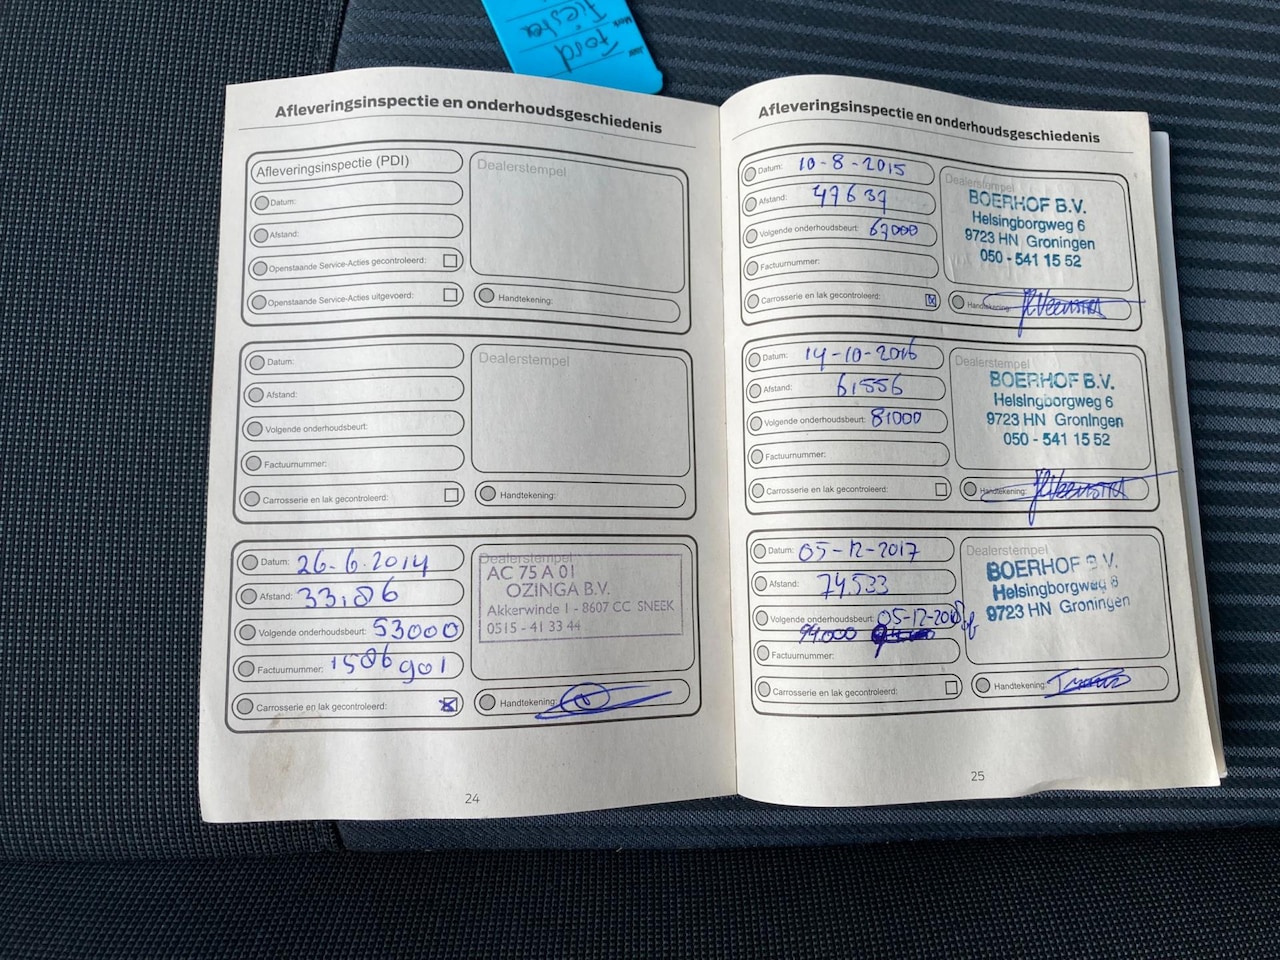 Ford
Fiesta
Afleveringsinspectie en onderhoudsgeschiedenis
Afleveringsinspectie (PDI)
Datum:
Afstand:
Openstaande Service-Acties gecontroleerd:
Openstaande Service-Acties uitgevoerd:
Dealerstempel
Handtekening:
Datum:
Afstand:
Volgende onderhoudsbeurt:
Factuurnummer:
Carrosserie en lak gecontroleerd:
Dealerstempel
Handtekening:
Datum: 26-6-2014
Afstand: 33.186
Volgende onderhoudsbeurt: 53000
Factuurnummer: 1586901
Carrosserie en lak gecontroleerd:
Dealerstempel
AC 75 A 01
OZINGA B.V.
Akkerwinde 1 - 8607 CC SNEEK
0515 - 41 33 44
Handtekening:
24
Afleveringsinspectie en onderhoudsgeschiedenis
Datum: 10-8-2015
Afstand: 47637
Volgende onderhoudsbeurt: 67000
Factuurnummer:
Carrosserie en lak gecontroleerd:
Dealerstempel
BOERHOF B.V.
Helsingborgweg 6
9723 HN Groningen
050 - 541 15 52
Handtekening:
Datum: 14-10-2016
Afstand: 61556
Volgende onderhoudsbeurt: 81000
Factuurnummer:
Carrosserie en lak gecontroleerd:
Dealerstempel
BOERHOF B.V.
Helsingborgweg 6
9723 HN Groningen
050 - 541 15 52
Handtekening:
Datum: 05-12-2017
Afstand: 74533
Volgende onderhoudsbeurt: 05-12-2018 of
94.000
Factuurnummer:
Carrosserie en lak gecontroleerd:
Dealerstempel
BOERHOF B.V.
Helsingborgweg 6
9723 HN Groningen
Handtekening:
25